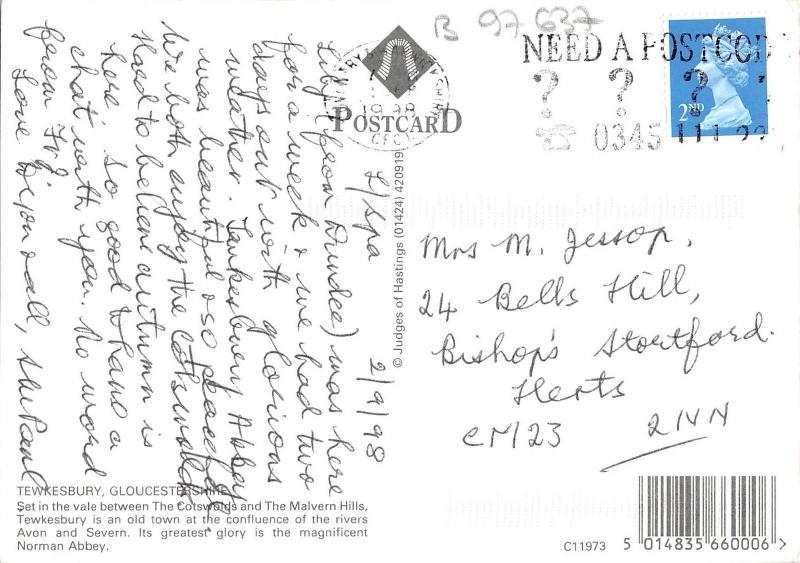 B 97 637
NEED A POSTCOD
? ? ?
0345 111 22
2ND
POSTCARD
© Judges of Hastings (01424) 420919
2/9/98
(from Dundee) was here
for a week & we had two
days out with glorious
weather. Tewkesbury Abbey
was beautiful & so peaceful
We both enjoy the Cotswolds
Hard to believe autumn is
here. So good to have a
chat with you. No word
from
Love to you all,
Mrs M. Jessop,
24 Bells Hill,
Bishop's Stortford.
Herts
CM23 2NN
TEWKESBURY, GLOUCESTERSHIRE
Set in the vale between The Cotswolds and The Malvern Hills,
Tewkesbury is an old town at the confluence of the rivers
Avon and Severn. Its greatest glory is the magnificent
Norman Abbey.
C11973
5 014835 660006 >